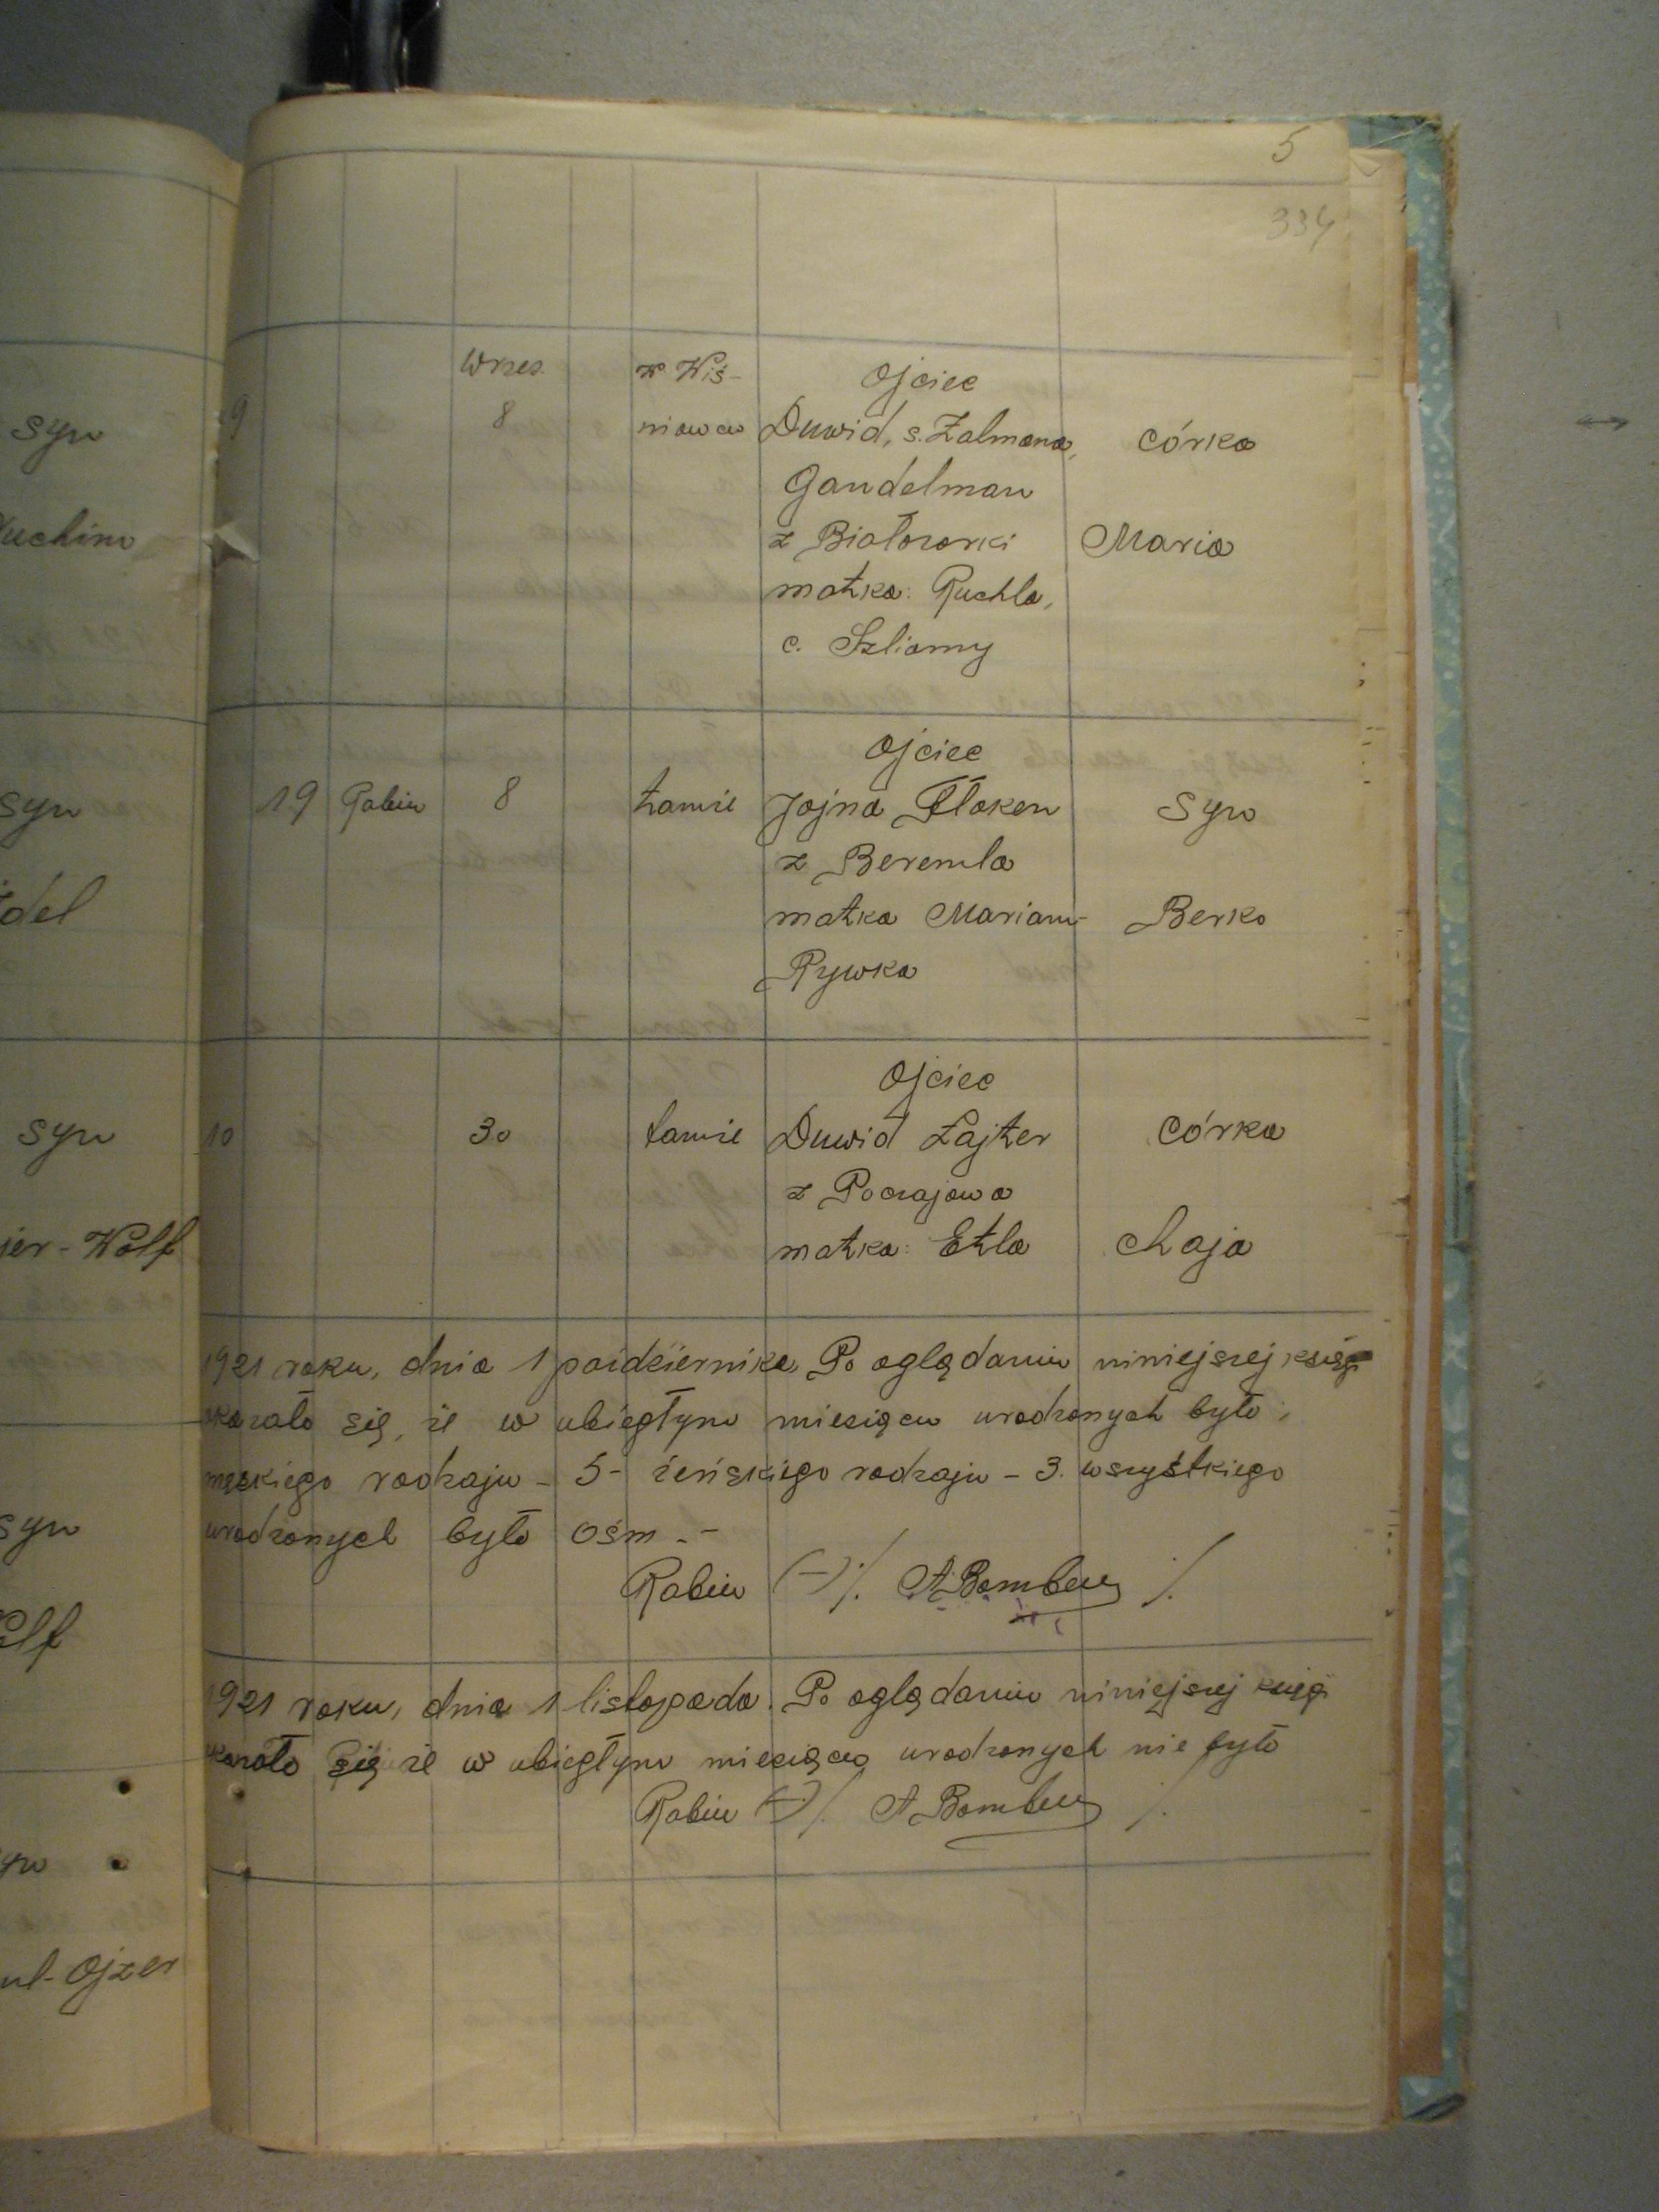 5
334
Wrzes. w Wiś- Ojciec
9 8 niowcu Duwid, s. Zalmana, córka
Gandelman
z Białozorki Maria
matka: Ruchla,
c. Szliomy
Ojciec
19 Rabin 8 tamże Jojna Flaken syn
z Beremla
matka Mariam- Berko
Rywka
Ojciec
10 30 tamże Duwid Lajter córka
z Poczajowa
matka: Etla Chaja
1921 roku, dnia 1 października, Po oglądaniu niniejszej księgi
okazało się, że w ubiegłym miesiącu urodzonych było;
męskiego rodzaju – 5 – żeńskiego rodzaju – 3. wszystkiego
urodzonych było ośm. –
Rabin (–) /. A. /.
1921 roku, dnia 1 listopada. Po oglądaniu niniejszej księgi
okazało się że w ubiegłym miesiącu urodzonych nie było
Rabin (–) /. A. /.
syn
uchim
syn
del
syn
jer-Wolf
syn
olf
syn
ul-Ojzer